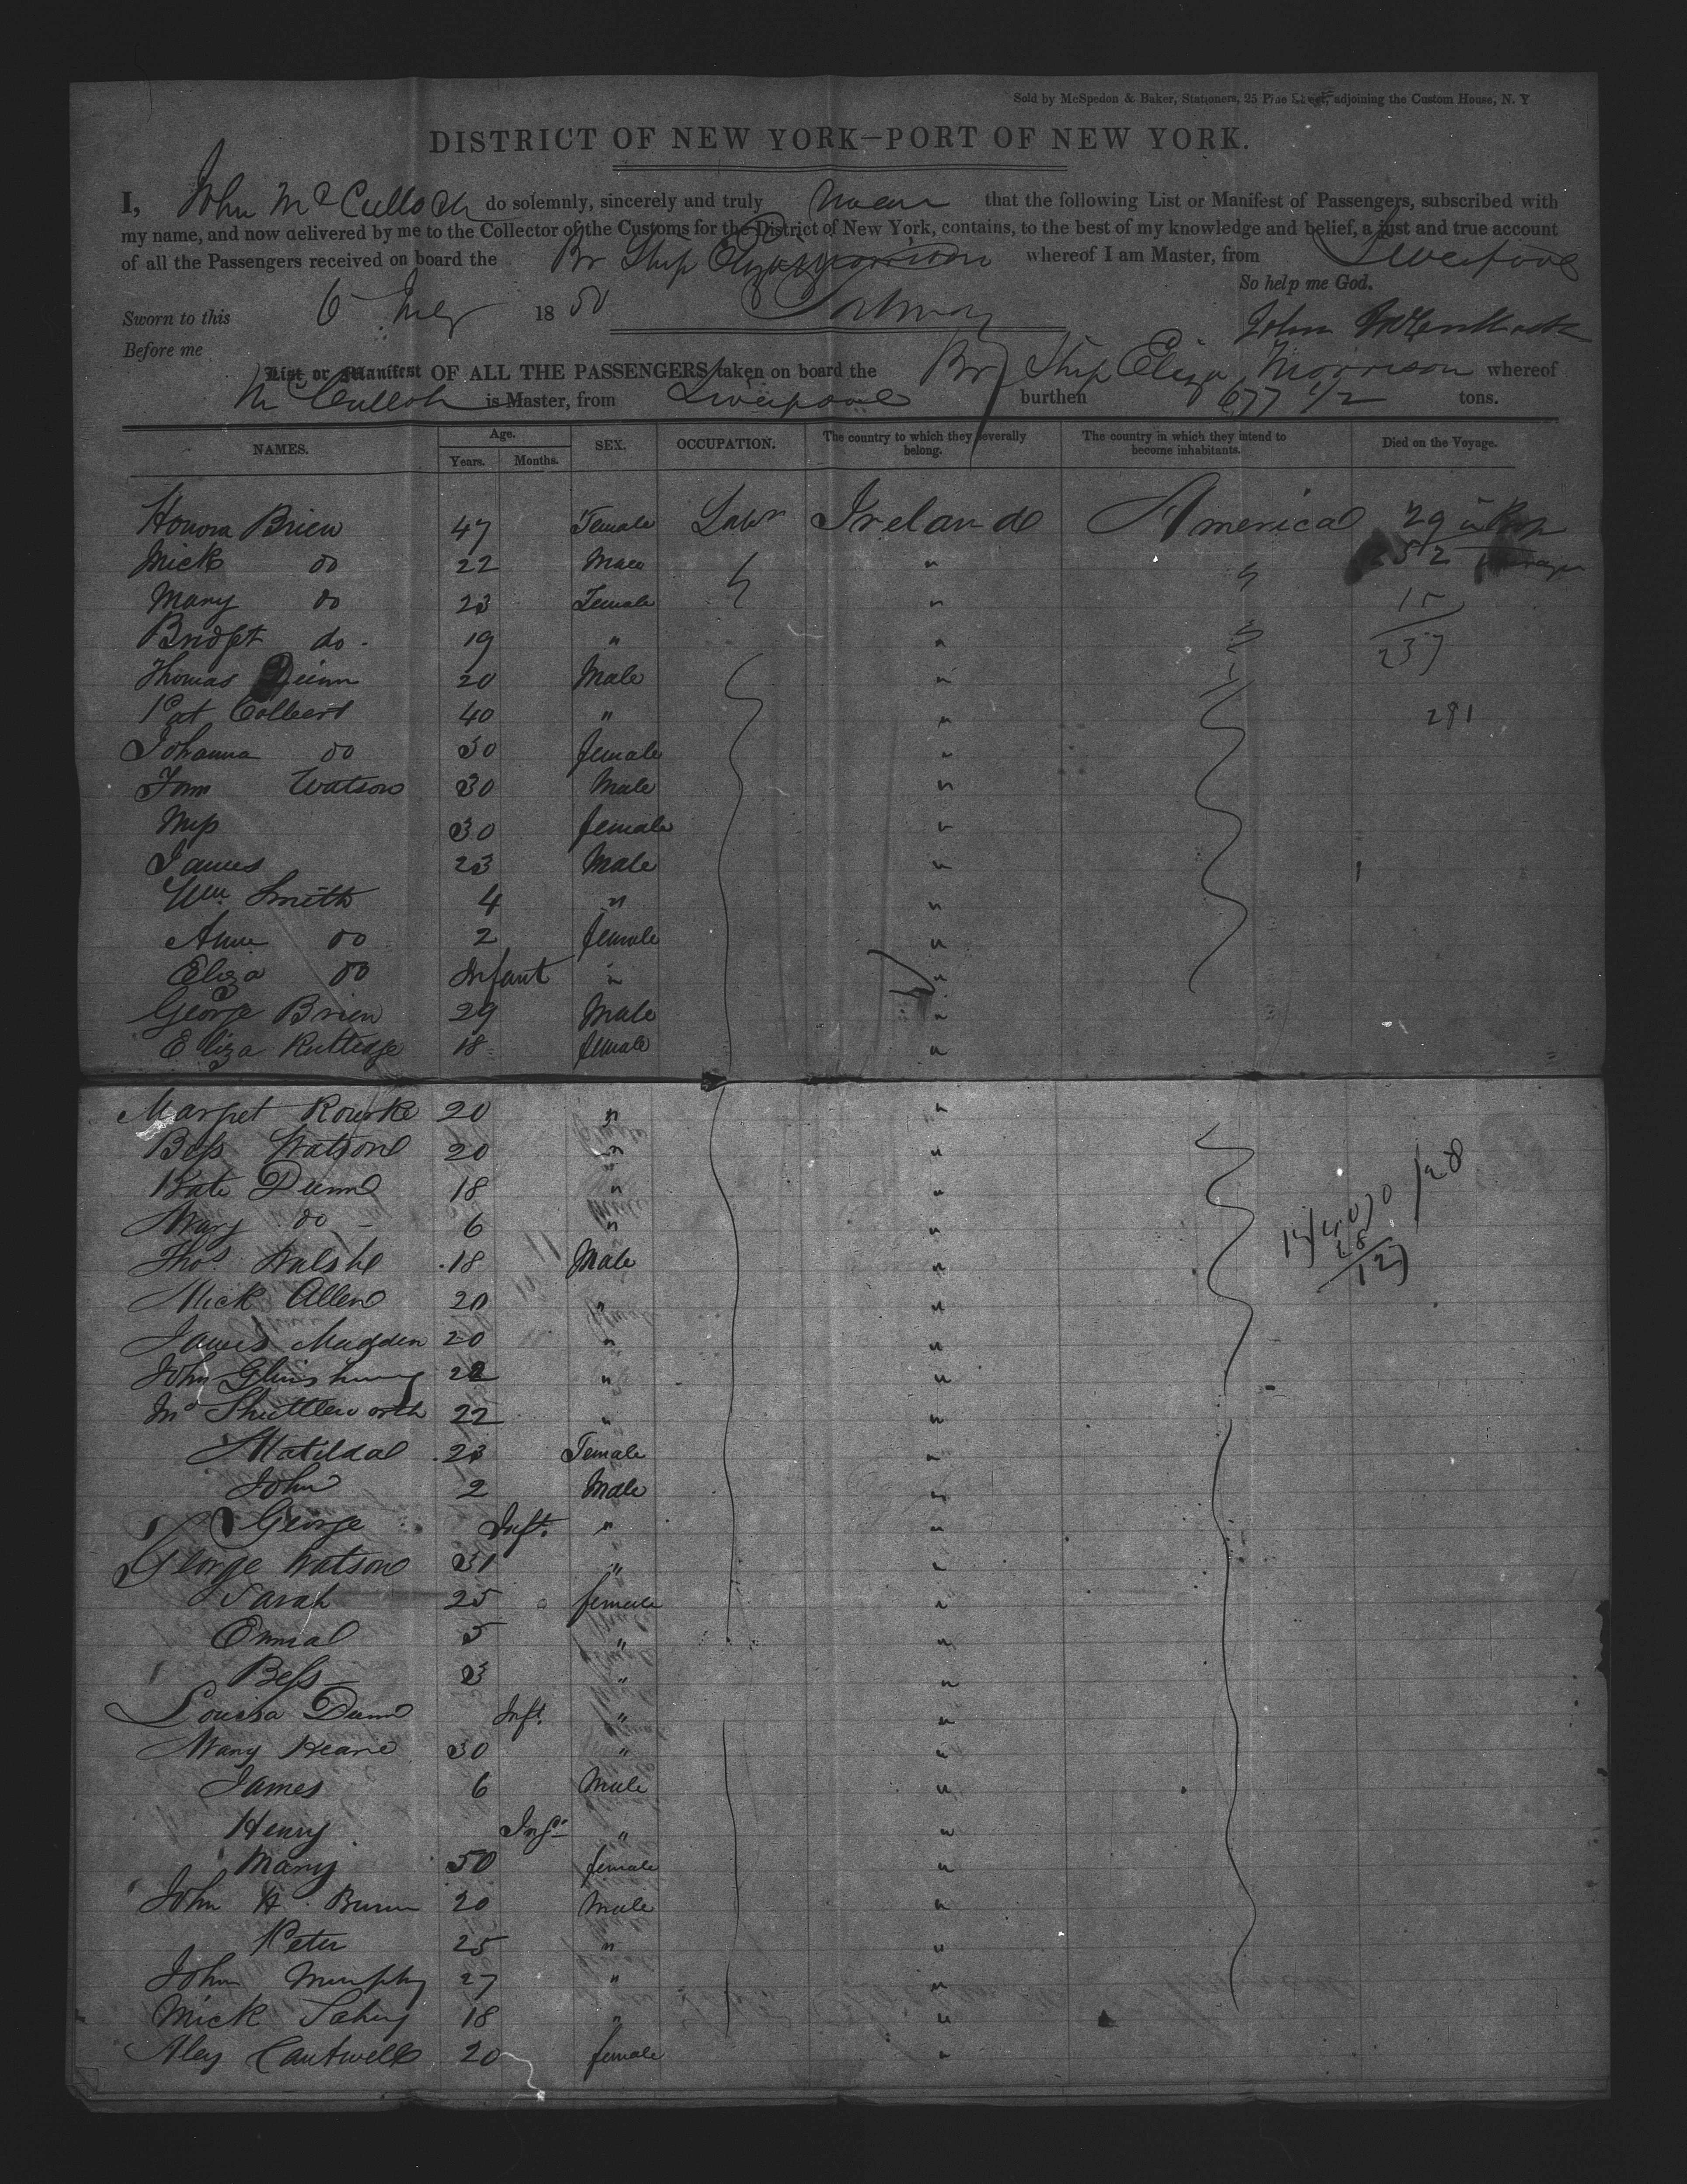 Sold by McSpedon & Baker, Stationers, 25 Pine Street, adjoining the Custom House, N. Y
DISTRICT OF NEW YORK—PORT OF NEW YORK.
I, John McCulloch do solemnly, sincerely and truly swear that the following List or Manifest of Passengers, subscribed with
my name, and now delivered by me to the Collector of the Customs for the District of New York, contains, to the best of my knowledge and belief, a just and true account
of all the Passengers received on board the Br Ship Eliza Morrison whereof I am Master, from Liverpool
So help me God.
Sworn to this 6 July 1850
John
Before me
List or Manifest OF ALL THE PASSENGERS taken on board the Br Ship Eliza Morrison whereof
McCulloh is Master, from Liverpool burthen 677 1/2 tons.
NAMES. Age. Years. Months. SEX. OCCUPATION. The country to which they severally belong. The country in which they intend to become inhabitants. Died on the Voyage.
Honora Brien 47 Female Labr Ireland America 29
Mick do 22 Male " 252
Mary do 23 Female " 15
Bridget do - 19 " " 237
Thomas Quinn 20 Male "
Pat Colbert 40 " " 281
Johanna do 30 female "
Tom Watson 30 Male "
30 female "
James 23 Male "
Wm Smith 4 " "
Anne do 2 female "
Eliza do Infant " "
George Brien 29 Male "
Eliza Rutledge 18 female "
Marget Rourke 20 " "
Bess Watson 20 " "
Kate Dunn 18 " " 128
Mary do - 6 " "
Thos Walshe 18 Male " 127
Mick Allen 20 " "
James Madden 20 " "
John 22 " "
Shuttleworth 22 " "
Matilda 23 Female "
John 2 Male "
George Inft. " "
George Watson 31 " "
Sarah 25 female "
Emma 5 " "
Bess 3 " "
Louisa Dunn Inft. " "
Mary Keane 30 " "
James 6 Male "
Henry Inft " "
Mary 50 female "
John H. 20 Male "
Peter 25 " "
John Murphy 27 " "
Mick 18 " "
Aley Cantwell 20 female "